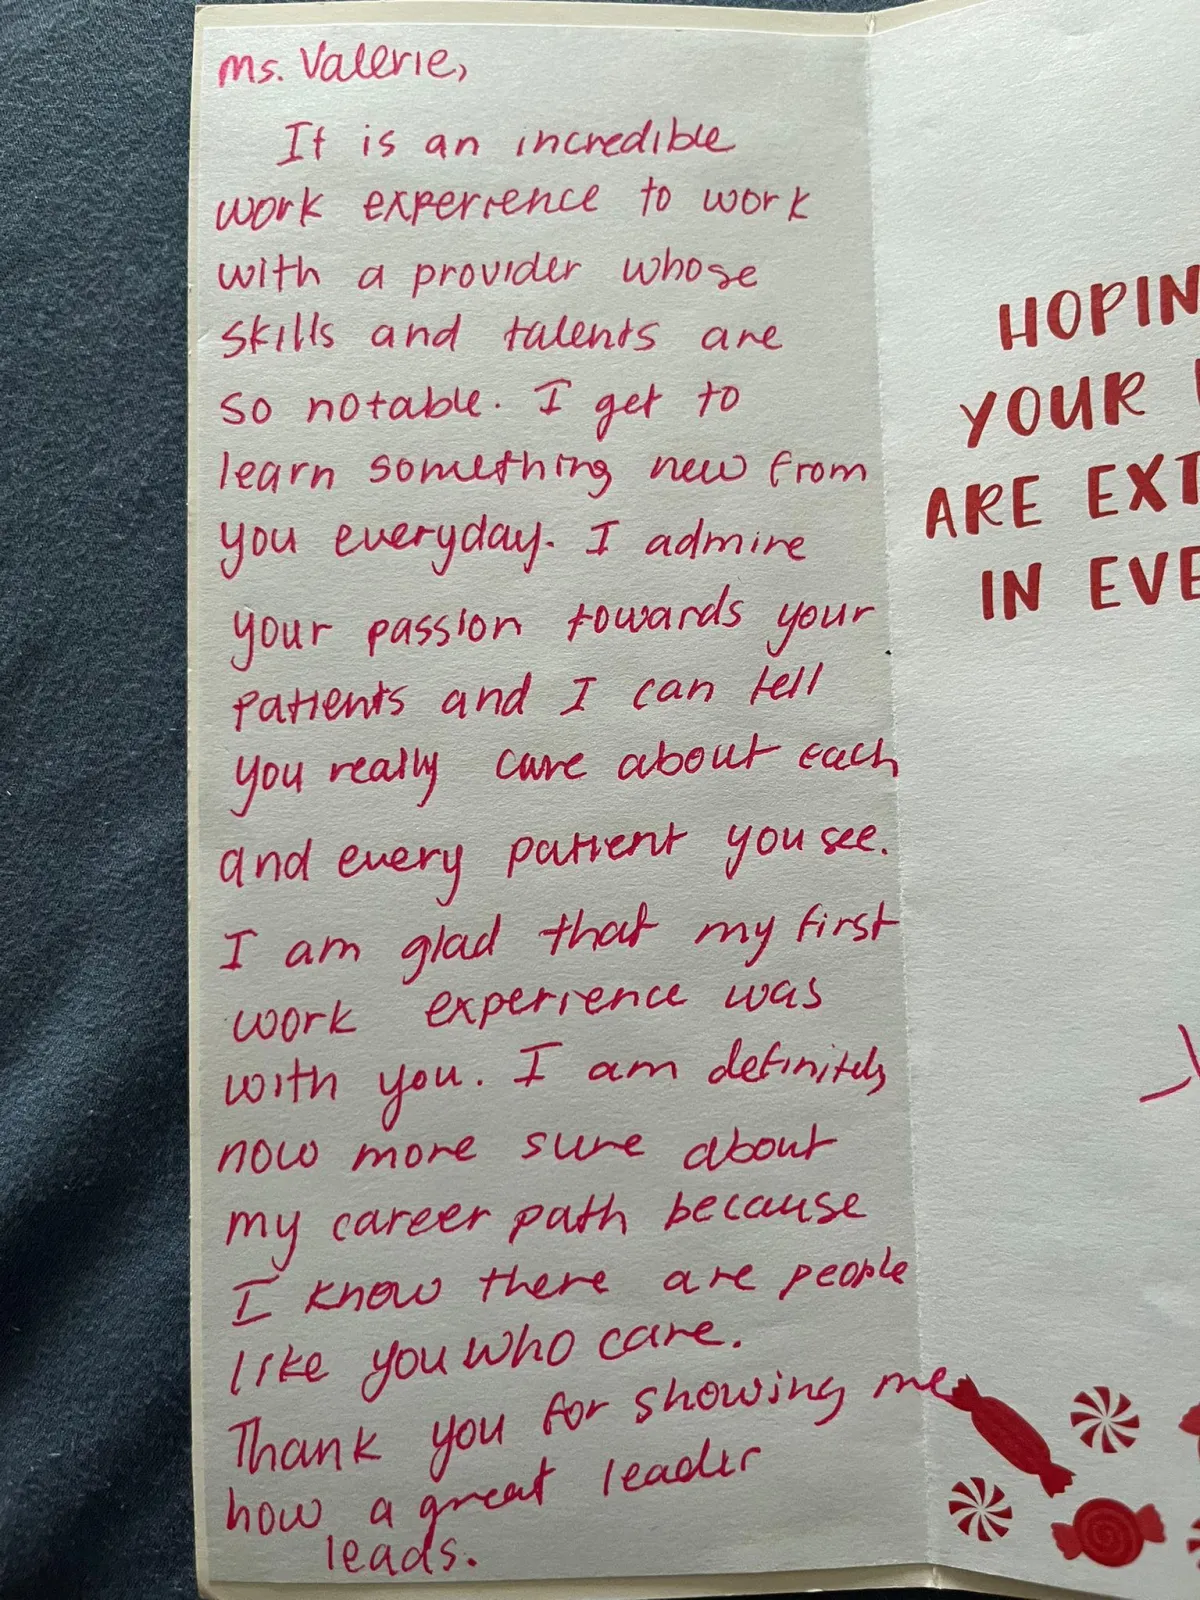 Ms. Valerie,
It is an incredible
work experience to work
with a provider whose
skills and talents are
so notable. I get to
learn something new from
you everyday. I admire
your passion towards your
patients and I can tell
you really care about each
and every patient you see.
I am glad that my first
work experience was
with you. I am definitely
now more sure about
my career path because
I know there are people
like you who care.
Thank you for showing me
how a great leader
leads.
HOPIN
YOUR
ARE EXT
IN EVE